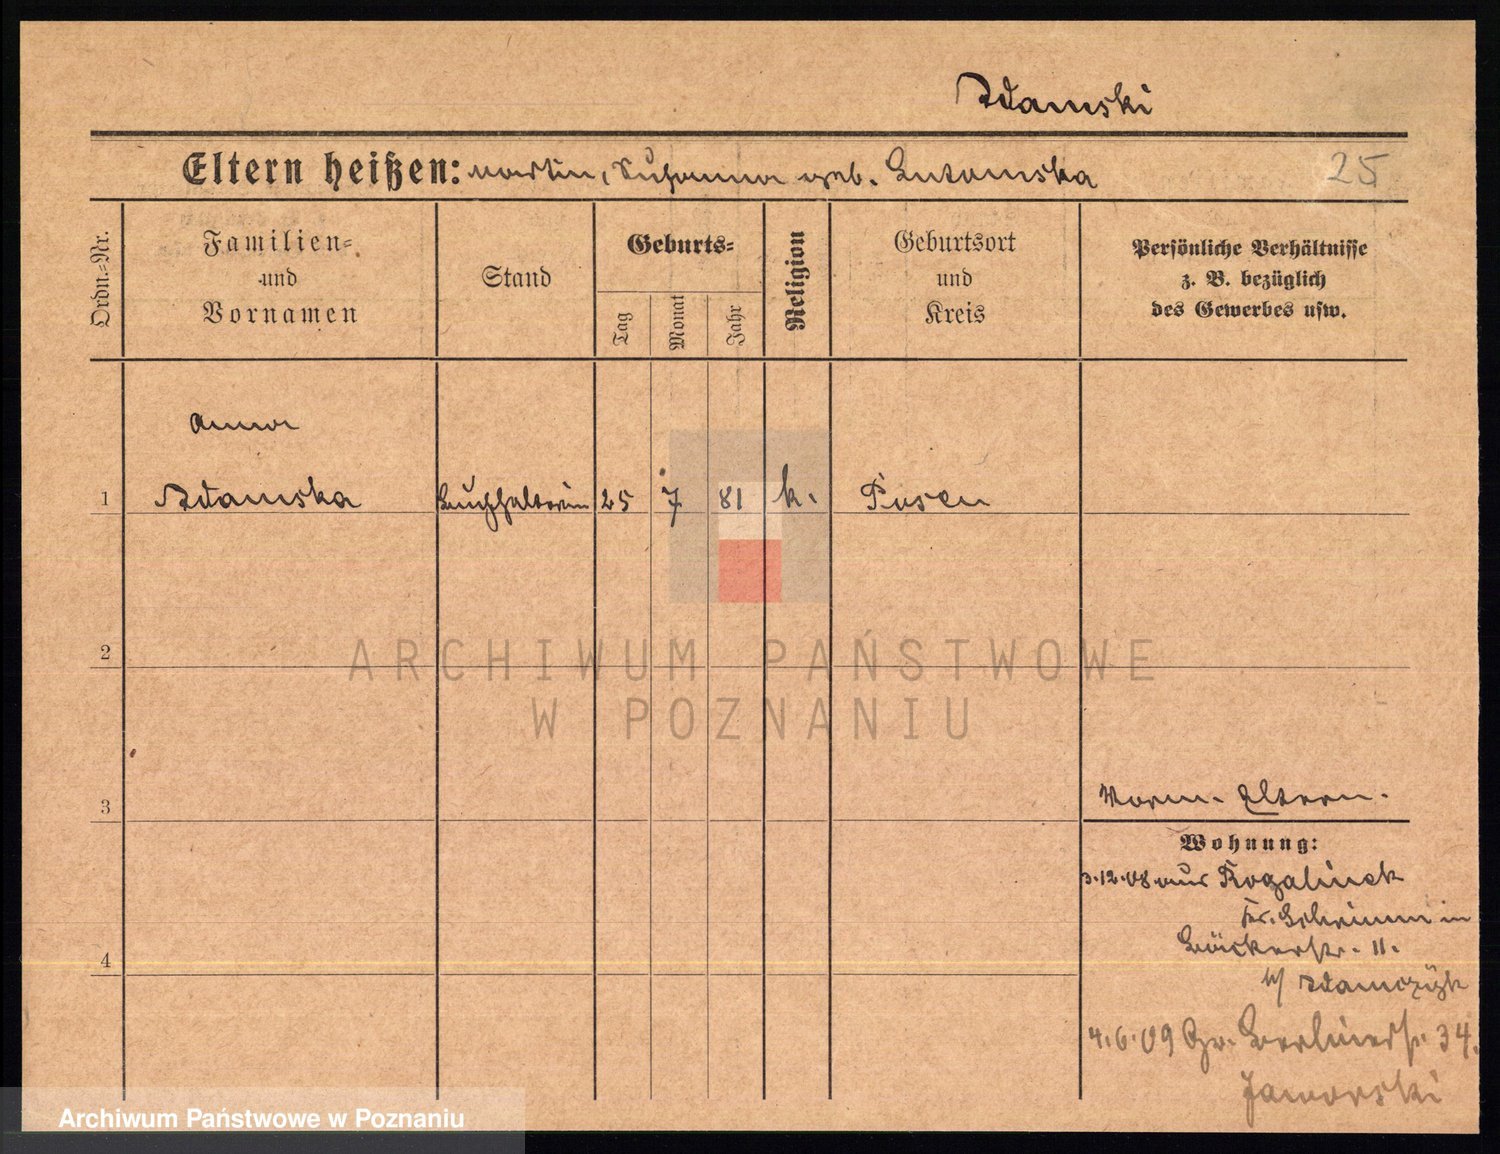 Adamski
Eltern heißen: Martin, Susanna geb. Lutomska
25
Ordn.-Nr.
Familien-
und
Vornamen
Stand
Geburts-
Tag
Monat
Jahr
Religion
Geburtsort
und
Kreis
Persönliche Verhältnisse
z. B. bezüglich
des Gewerbes usw.
Anna
1 Adamska Buchhalterin 25 7 81 k. Posen
2
ARCHIWUM PAŃSTWOWE
W POZNANIU
3
Vorm. Eltern.
Wohnung:
3.12.08 aus Rogalinek
Kr. Schrimm in
Bäckerstr. 11.
b/ Adamczyk
4
4.6.09 Berlinerstr. 34.
Jaworski
Archiwum Państwowe w Poznaniu